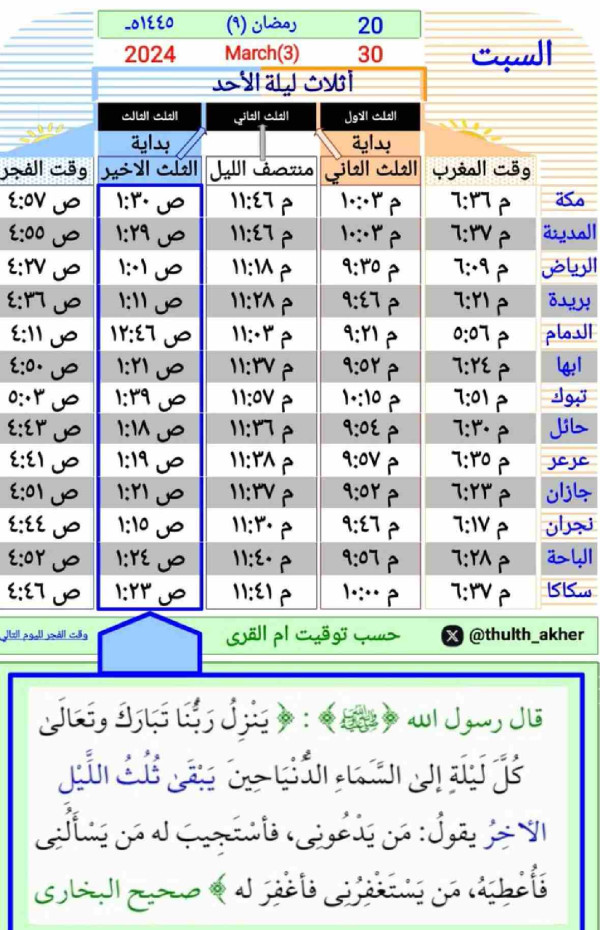 20 رمضان (٩) ١٤٤٥هـ
السبت
30 March(3) 2024
أثلاث ليلة الأحد
الثلث الاول الثلث الثاني الثلث الثالث
بداية بداية
وقت المغرب الثلث الثاني منتصف الليل الثلث الاخير وقت الفجر
مكة ٦:٣٦ م ١٠:٠٣ م ١١:٤٦ م ١:٣٠ ص ٤:٥٧ ص
المدينة ٦:٣٧ م ١٠:٠٣ م ١١:٤٦ م ١:٢٩ ص ٤:٥٥ ص
الرياض ٦:٠٩ م ٩:٣٥ م ١١:١٨ م ١:٠١ ص ٤:٢٧ ص
بريدة ٦:٢١ م ٩:٤٦ م ١١:٢٨ م ١:١١ ص ٤:٣٦ ص
الدمام ٥:٥٦ م ٩:٢١ م ١١:٠٣ م ١٢:٤٦ ص ٤:١١ ص
ابها ٦:٢٤ م ٩:٥٢ م ١١:٣٧ م ١:٢١ ص ٤:٥٠ ص
تبوك ٦:٥١ م ١٠:١٥ م ١١:٥٧ م ١:٣٩ ص ٥:٠٣ ص
حائل ٦:٣٠ م ٩:٥٤ م ١١:٣٦ م ١:١٨ ص ٤:٤٣ ص
عرعر ٦:٣٥ م ٩:٥٧ م ١١:٣٨ م ١:١٩ ص ٤:٤١ ص
جازان ٦:٢٣ م ٩:٥٢ م ١١:٣٧ م ١:٢١ ص ٤:٥١ ص
نجران ٦:١٧ م ٩:٤٦ م ١١:٣٠ م ١:١٥ ص ٤:٤٤ ص
الباحة ٦:٢٨ م ٩:٥٦ م ١١:٤٠ م ١:٢٤ ص ٤:٥٢ ص
سكاكا ٦:٣٧ م ١٠:٠٠ م ١١:٤١ م ١:٢٣ ص ٤:٤٦ ص
@thulth_akher حسب توقيت ام القرى وقت الفجر لليوم التالي
قال رسول الله ﴿ﷺ﴾ : ﴿ يَنْزِلُ رَبُّنَا تَبَارَكَ وتَعَالَىٰ
كُلَّ لَيْلَةٍ إلىٰ السَّمَاءِ الدُّنْيَاحِينَ يَبْقَىٰ ثُلُثُ اللَّيْلِ
الآخِرُ يقولُ: مَن يَدْعُونِى، فأسْتَجِيبَ له مَن يَسْأَلُنِى
فَأُعْطِيَهُ، مَن يَسْتَغْفِرُنِى فأغْفِرَ له ﴾ صحيح البخارى